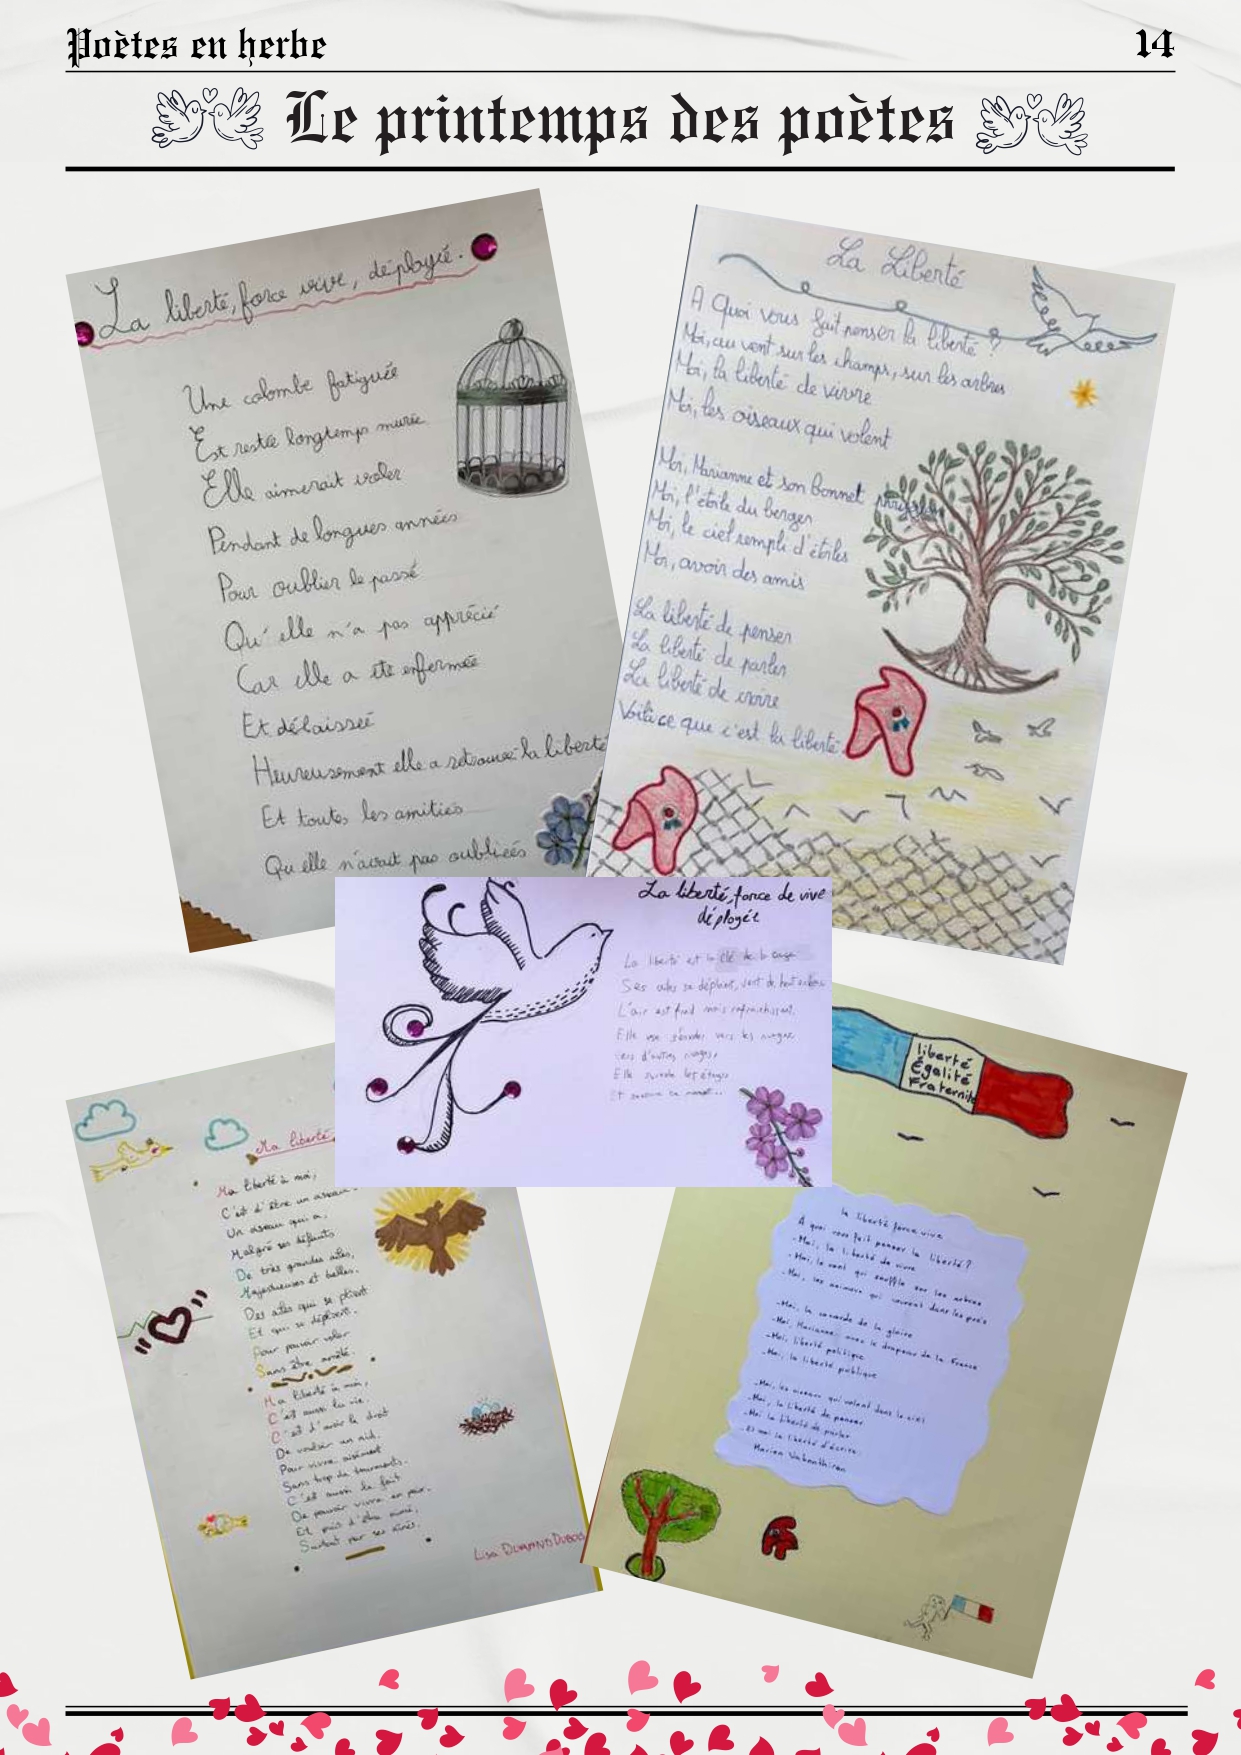 Poètes en herbe
14
Le printemps des poètes
La liberté, force vive, déployé.
Une colombe fatiguée
Est restée longtemps murée
Elle aimerait voler
Pendant de longues années
Pour oublier le passé
Qu'elle n'a pas apprécié
Car elle a été enfermée
Et délaisseé
Heureusement elle a retrouvé la liberté
Et toutes les amitiés
Qu'elle n'avait pas oubliées
La Liberté
A Quoi vous fait penser la liberté ?
Moi, au vent sur les champs, sur les arbres
Moi, la liberté de vivre
Moi, les oiseaux qui volent
Moi, Marianne et son bonnet phrygien
Moi, l'étoile du berger
Moi, le ciel rempli d'étoiles
Moi, avoir des amis
La liberté de penser
La liberté de parler
La liberté de croire
Voilà ce que c'est la liberté.
La liberté, force de vive
déployée
La liberté est la clé de la cage
Ses ailes se déplient, vent de haut
L'air est froid mais rafraichissant.
Elle vers les nuages
vers d'autres
Elle survole les
Et
Ma liberté
Ma liberté à moi,
C'est d'être un oiseau
Un oiseau qui a,
Malgré ses défauts
De très grandes ailes,
Majestueuses et belles.
Des ailes qui se plient
Et qui se déplient.
Pour pouvoir voler
Sans être arrêté.
Ma liberté à moi,
C'est aussi la vie.
C'est d'avoir le droit
De vouloir un nid.
Pour vivre aisément
Sans trop de tourments.
C'est aussi le fait
De pouvoir vivre en paix.
Et puis d'être aimé,
Surtout par ses aînés.
Lisa DURAND DUBOIS
liberté
Égalité
Fraternité
la liberté force vive
A quoi vous fait penser la liberté ?
- Moi, la liberté de vivre
- Moi, le vent qui souffle sur les arbres
- Moi, les animaux qui courent dans les prés
- Moi, la cocarde de la gloire
- Moi, Marianne avec le drapeau de la France
- Moi, liberté politique
- Moi, la liberté publique
- Moi, les oiseaux qui volent dans le ciel
- Moi, la liberté de penser
- Moi la liberté de parler
- Et moi la liberté d'écrire.